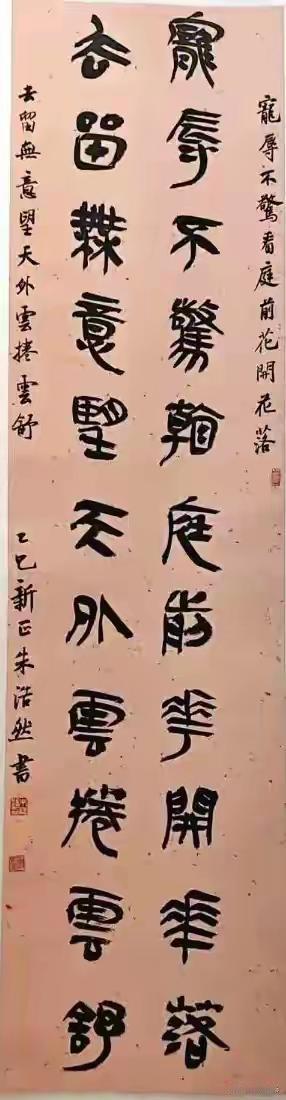 寵辱不驚看庭前花開花落
寵辱不驚看庭前華開華落
去留無意望天外雲捲雲舒
去留無意望天外雲捲雲舒
乙巳新正朱浩然書